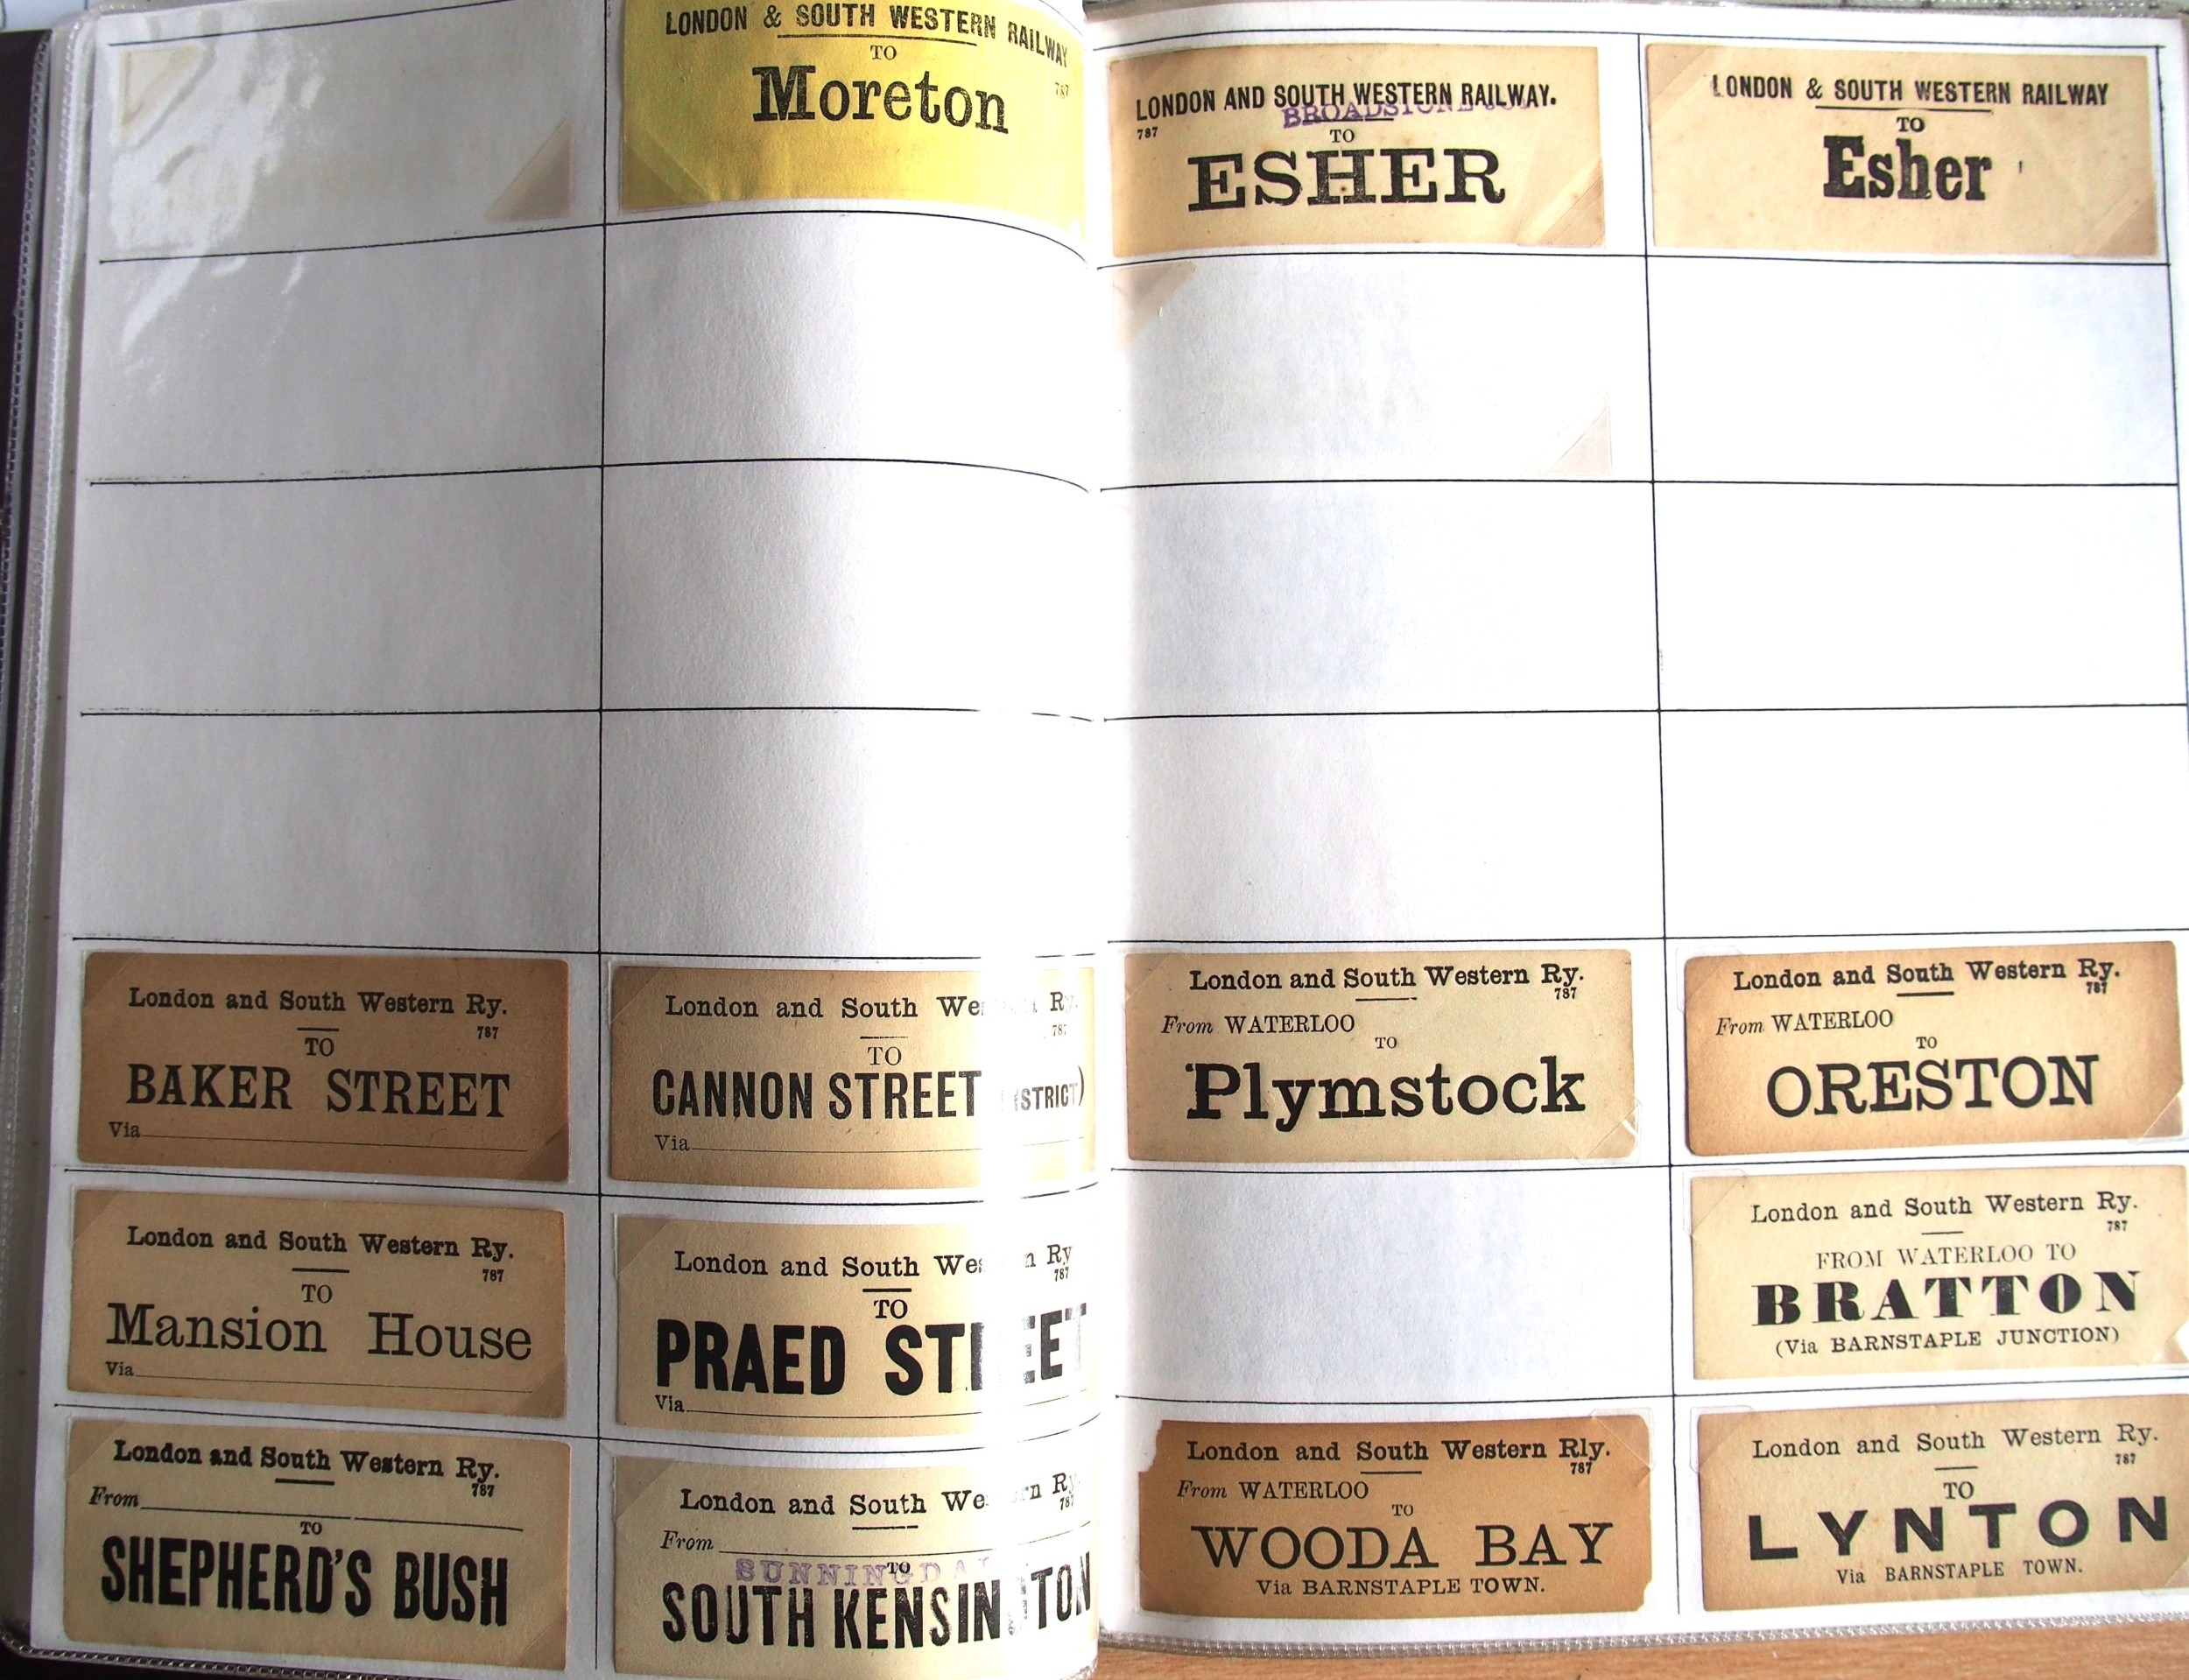 LONDON & SOUTH WESTERN RAILWAY
TO
787
Moreton
LONDON AND SOUTH WESTERN RAILWAY.
BROADSTONE
787
TO
ESHER
LONDON & SOUTH WESTERN RAILWAY
TO
Esher
London and South Western Ry.
787
TO
BAKER STREET
Via
London and South We Ry.
787
TO
CANNON STREET ISTRICT)
Via
London and South Western Ry.
787
From WATERLOO
TO
Plymstock
London and South Western Ry.
787
From WATERLOO
TO
ORESTON
London and South Western Ry.
787
TO
Mansion House
Via
London and South Wes n Ry
787
TO
PRAED STREET
Via
London and South Western Ry.
787
FROM WATERLOO TO
BRATTON
(Via BARNSTAPLE JUNCTION)
London and South Western Ry.
787
From
TO
SHEPHERD'S BUSH
London and South We rn Ry
787
From
SUNNINGDA
TO
SOUTH KENSIN TON
London and South Western Rly.
787
From WATERLOO
TO
WOODA BAY
Via BARNSTAPLE TOWN.
London and South Western Ry.
787
TO
LYNTON
Via BARNSTAPLE TOWN.